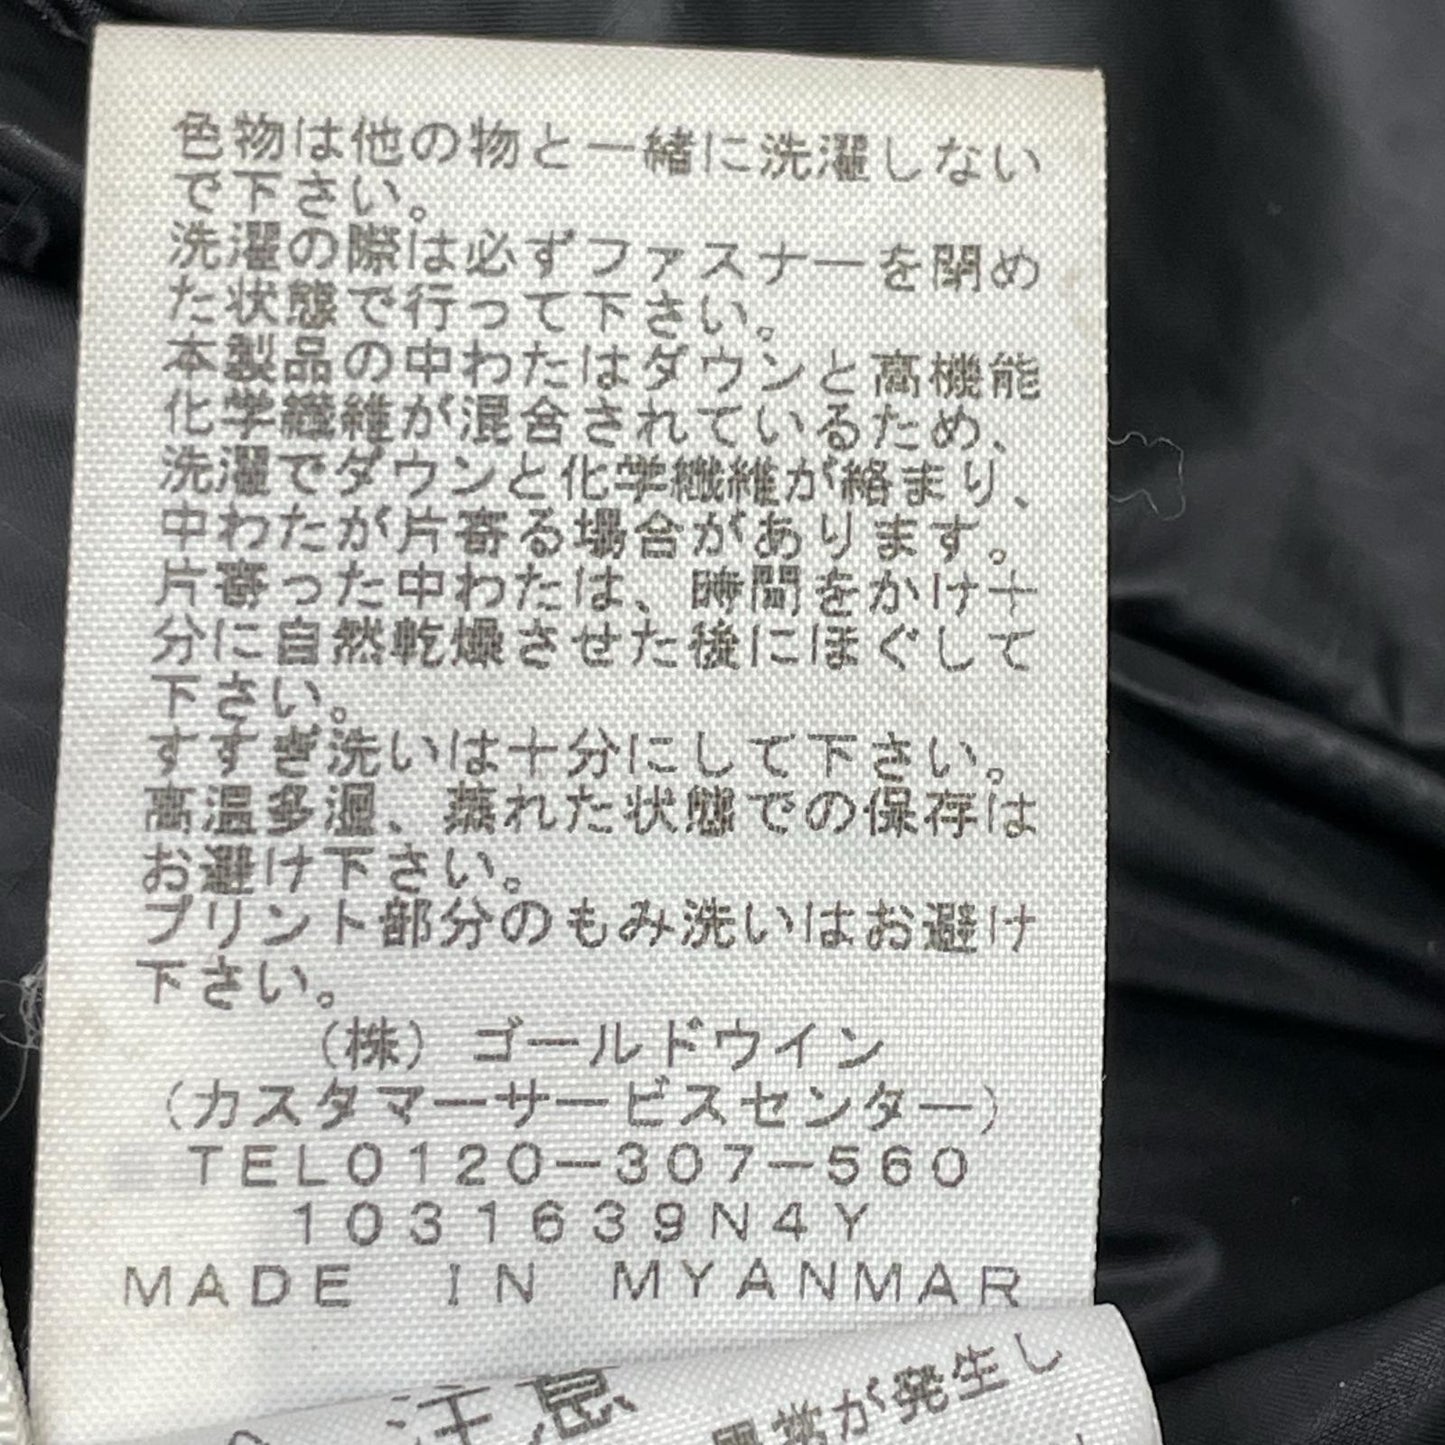 色物は他の物と一緒に洗濯しない
で下さい。
洗濯の際は必ずファスナーを閉め
た状態で行って下さい。
本製品の中わたはダウンと高機能
化学繊維が混合されているため、
洗濯でダウンと化学繊維が絡まり、
中わたが片寄る場合があります。
片寄った中わたは、時間をかけ十
分に自然乾燥させた後にほぐして
下さい。
すすぎ洗いは十分にして下さい。
高温多湿、蒸れた状態での保存は
お避け下さい。
プリント部分のもみ洗いはお避け
下さい。
(株)ゴールドウイン
(カスタマーサービスセンター)
TEL0120-307-560
1031639N4Y
MADE IN MYANMAR
注意
が発生し